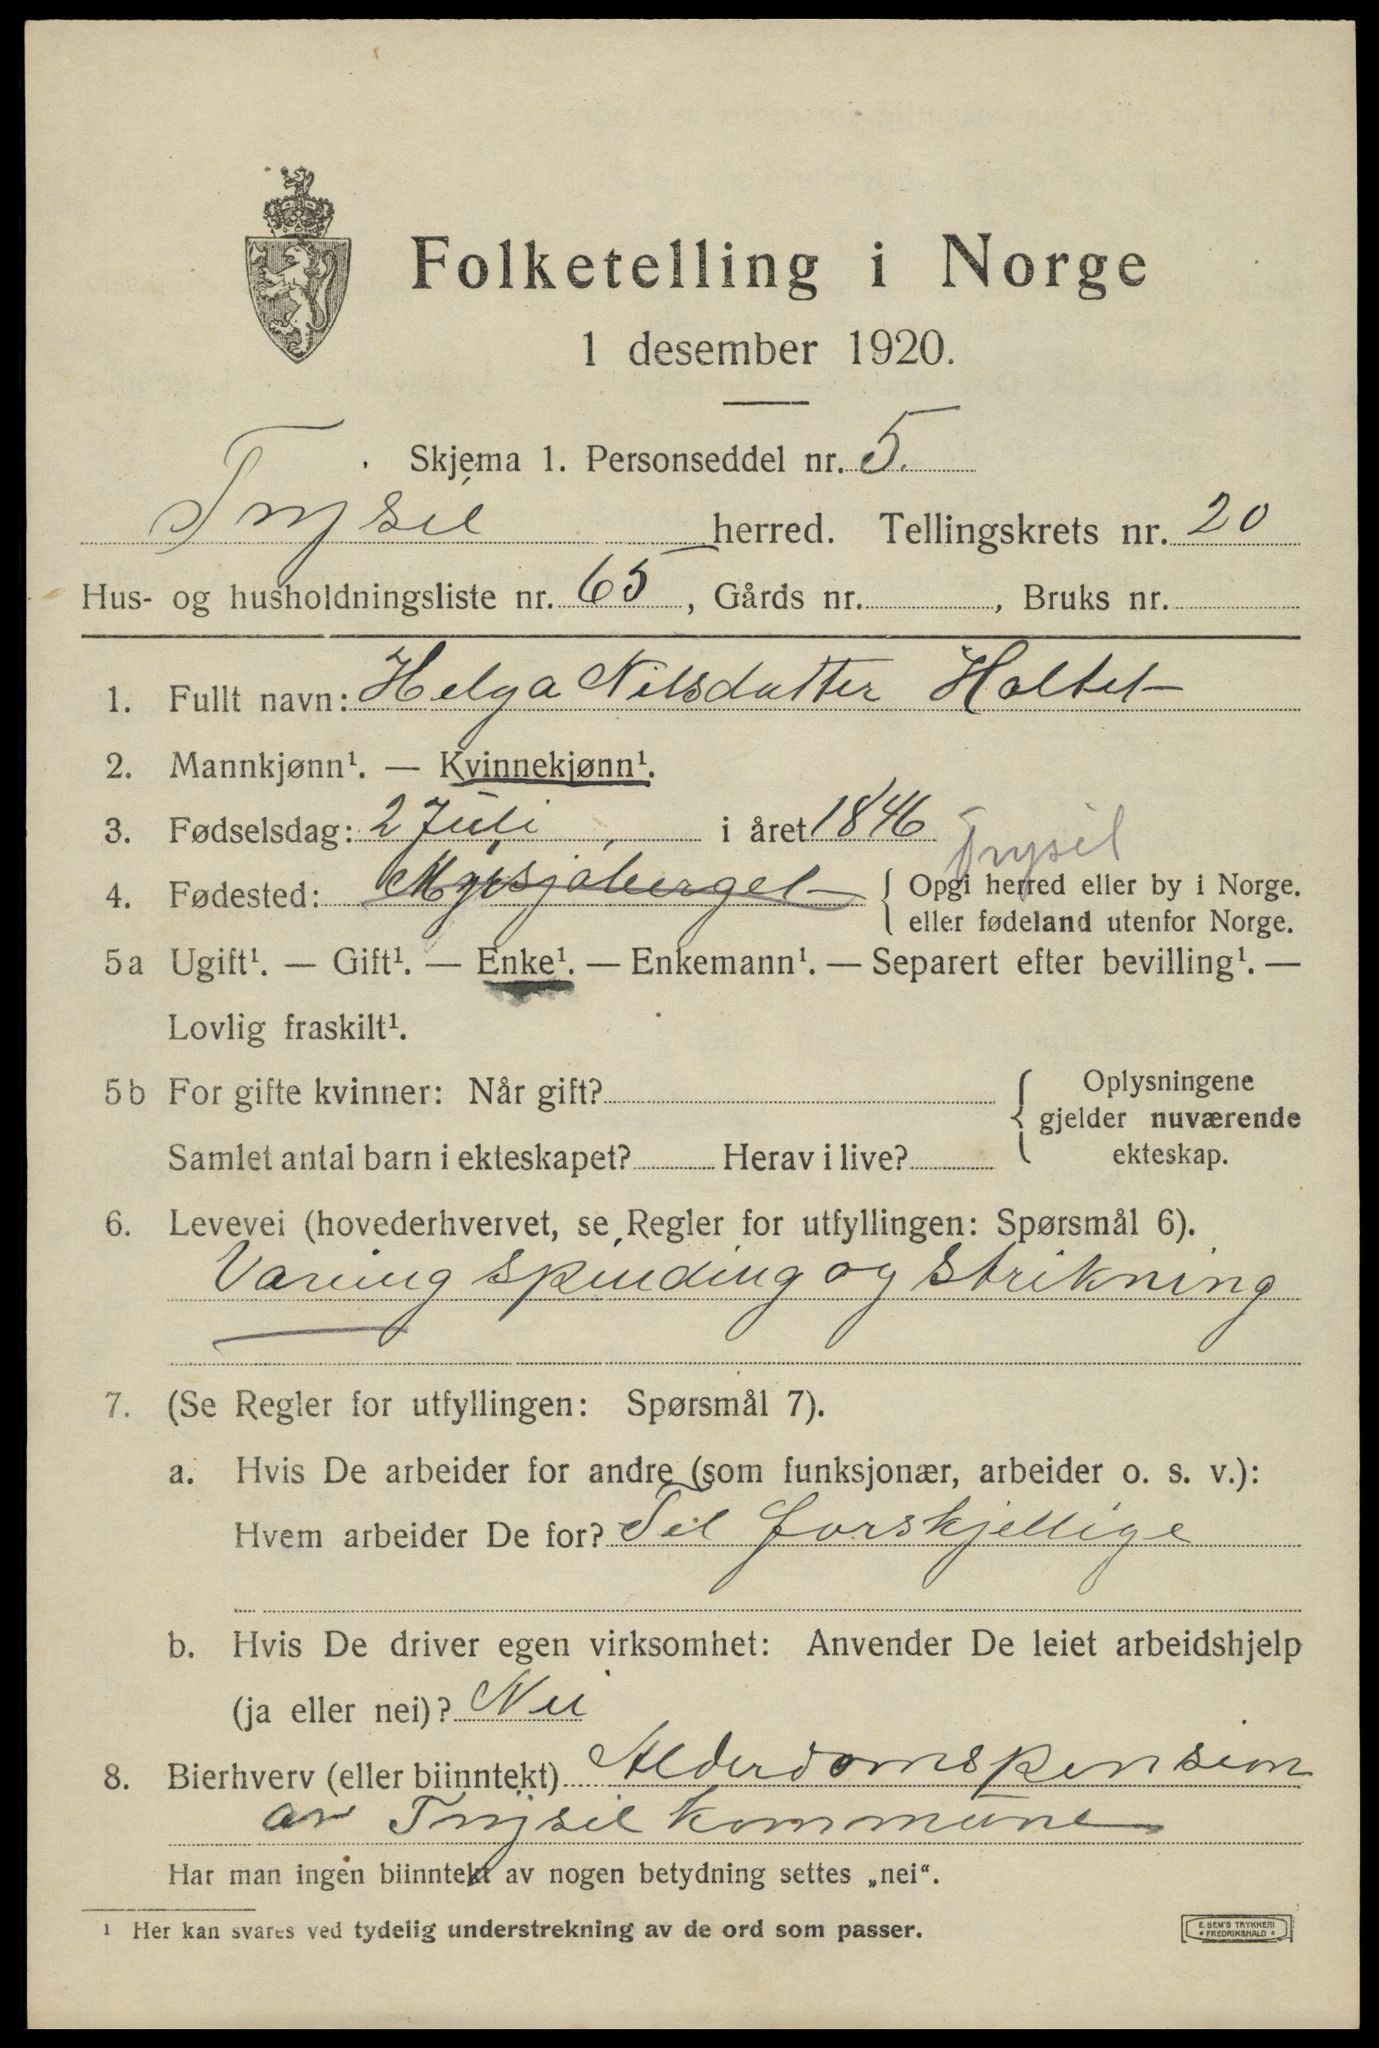 Folketelling i Norge
1 desember 1920.
Skjema 1. Personseddel nr. 5.
Trysil herred. Tellingskrets nr. 20
Hus- og husholdningsliste nr. 65, Gårds nr. , Bruks nr.
1. Fullt navn: Helga Nilsdatter Holtet
2. Mannkjønn¹. — Kvinnekjønn¹.
3. Fødselsdag: 2 Juli i året 1846
Trysil
4. Fødested: { Opgi herred eller by i Norge.
eller fødeland utenfor Norge.
5a Ugift¹. — Gift¹. — Enke¹. — Enkemann¹. — Separert efter bevilling¹. —
Lovlig fraskilt¹.
5b For gifte kvinner: Når gift? { Oplysningene
gjelder nuværende
Samlet antal barn i ekteskapet? Herav i live? ekteskap.
6. Levevei (hovederhvervet, se Regler for utfyllingen: Spørsmål 6).
Vaning spinding og strikning
7. (Se Regler for utfyllingen: Spørsmål 7).
a. Hvis De arbeider for andre (som funksjonær, arbeider o. s. v.):
Hvem arbeider De for? Til forskjellige
b. Hvis De driver egen virksomhet: Anvender De leiet arbeidshjelp
(ja eller nei)? Nei
8. Bierhverv (eller biinntekt) Alderdomspension
av Trysil kommune
Har man ingen biinntekt av nogen betydning settes „nei".
¹ Her kan svares ved tydelig understrekning av de ord som passer.
E. SEM'S TRYKKERI
FREDRIKSHALD